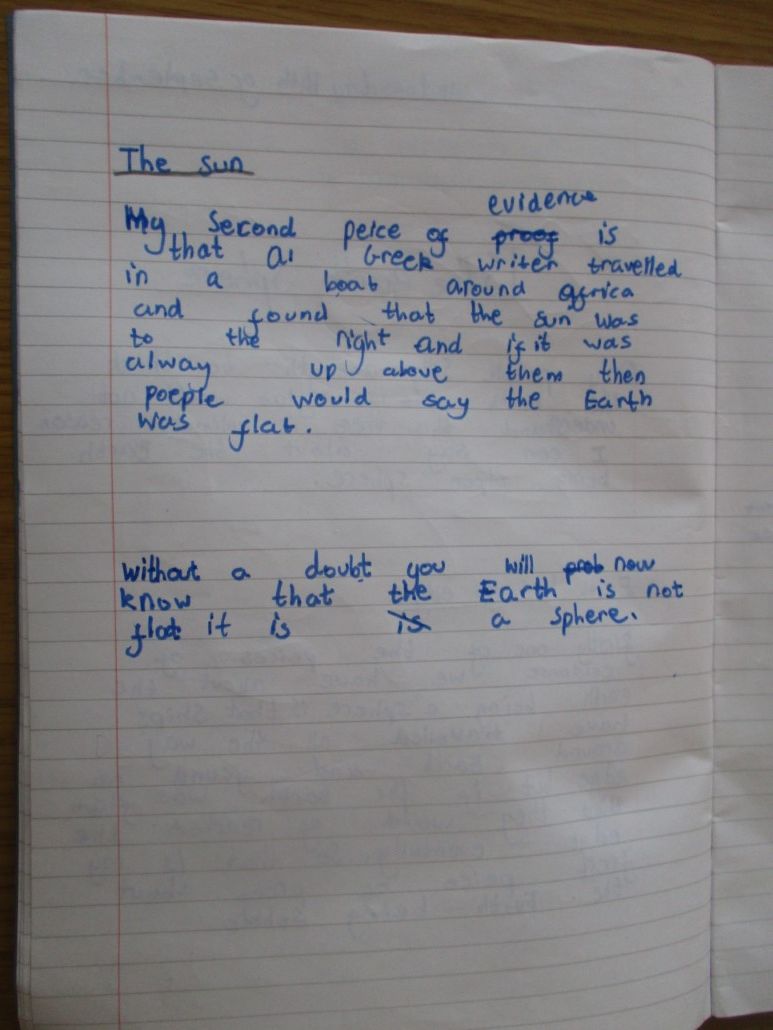 The sun
evidence
My second peice of proof is
that a Greek writer travelled
in a boat around africa
and found that the sun was
to the right and if it was
alway up above them then
poeple would say the Earth
was flat.
without a doubt you will prob now
know that the Earth is not
flat it is is a sphere.